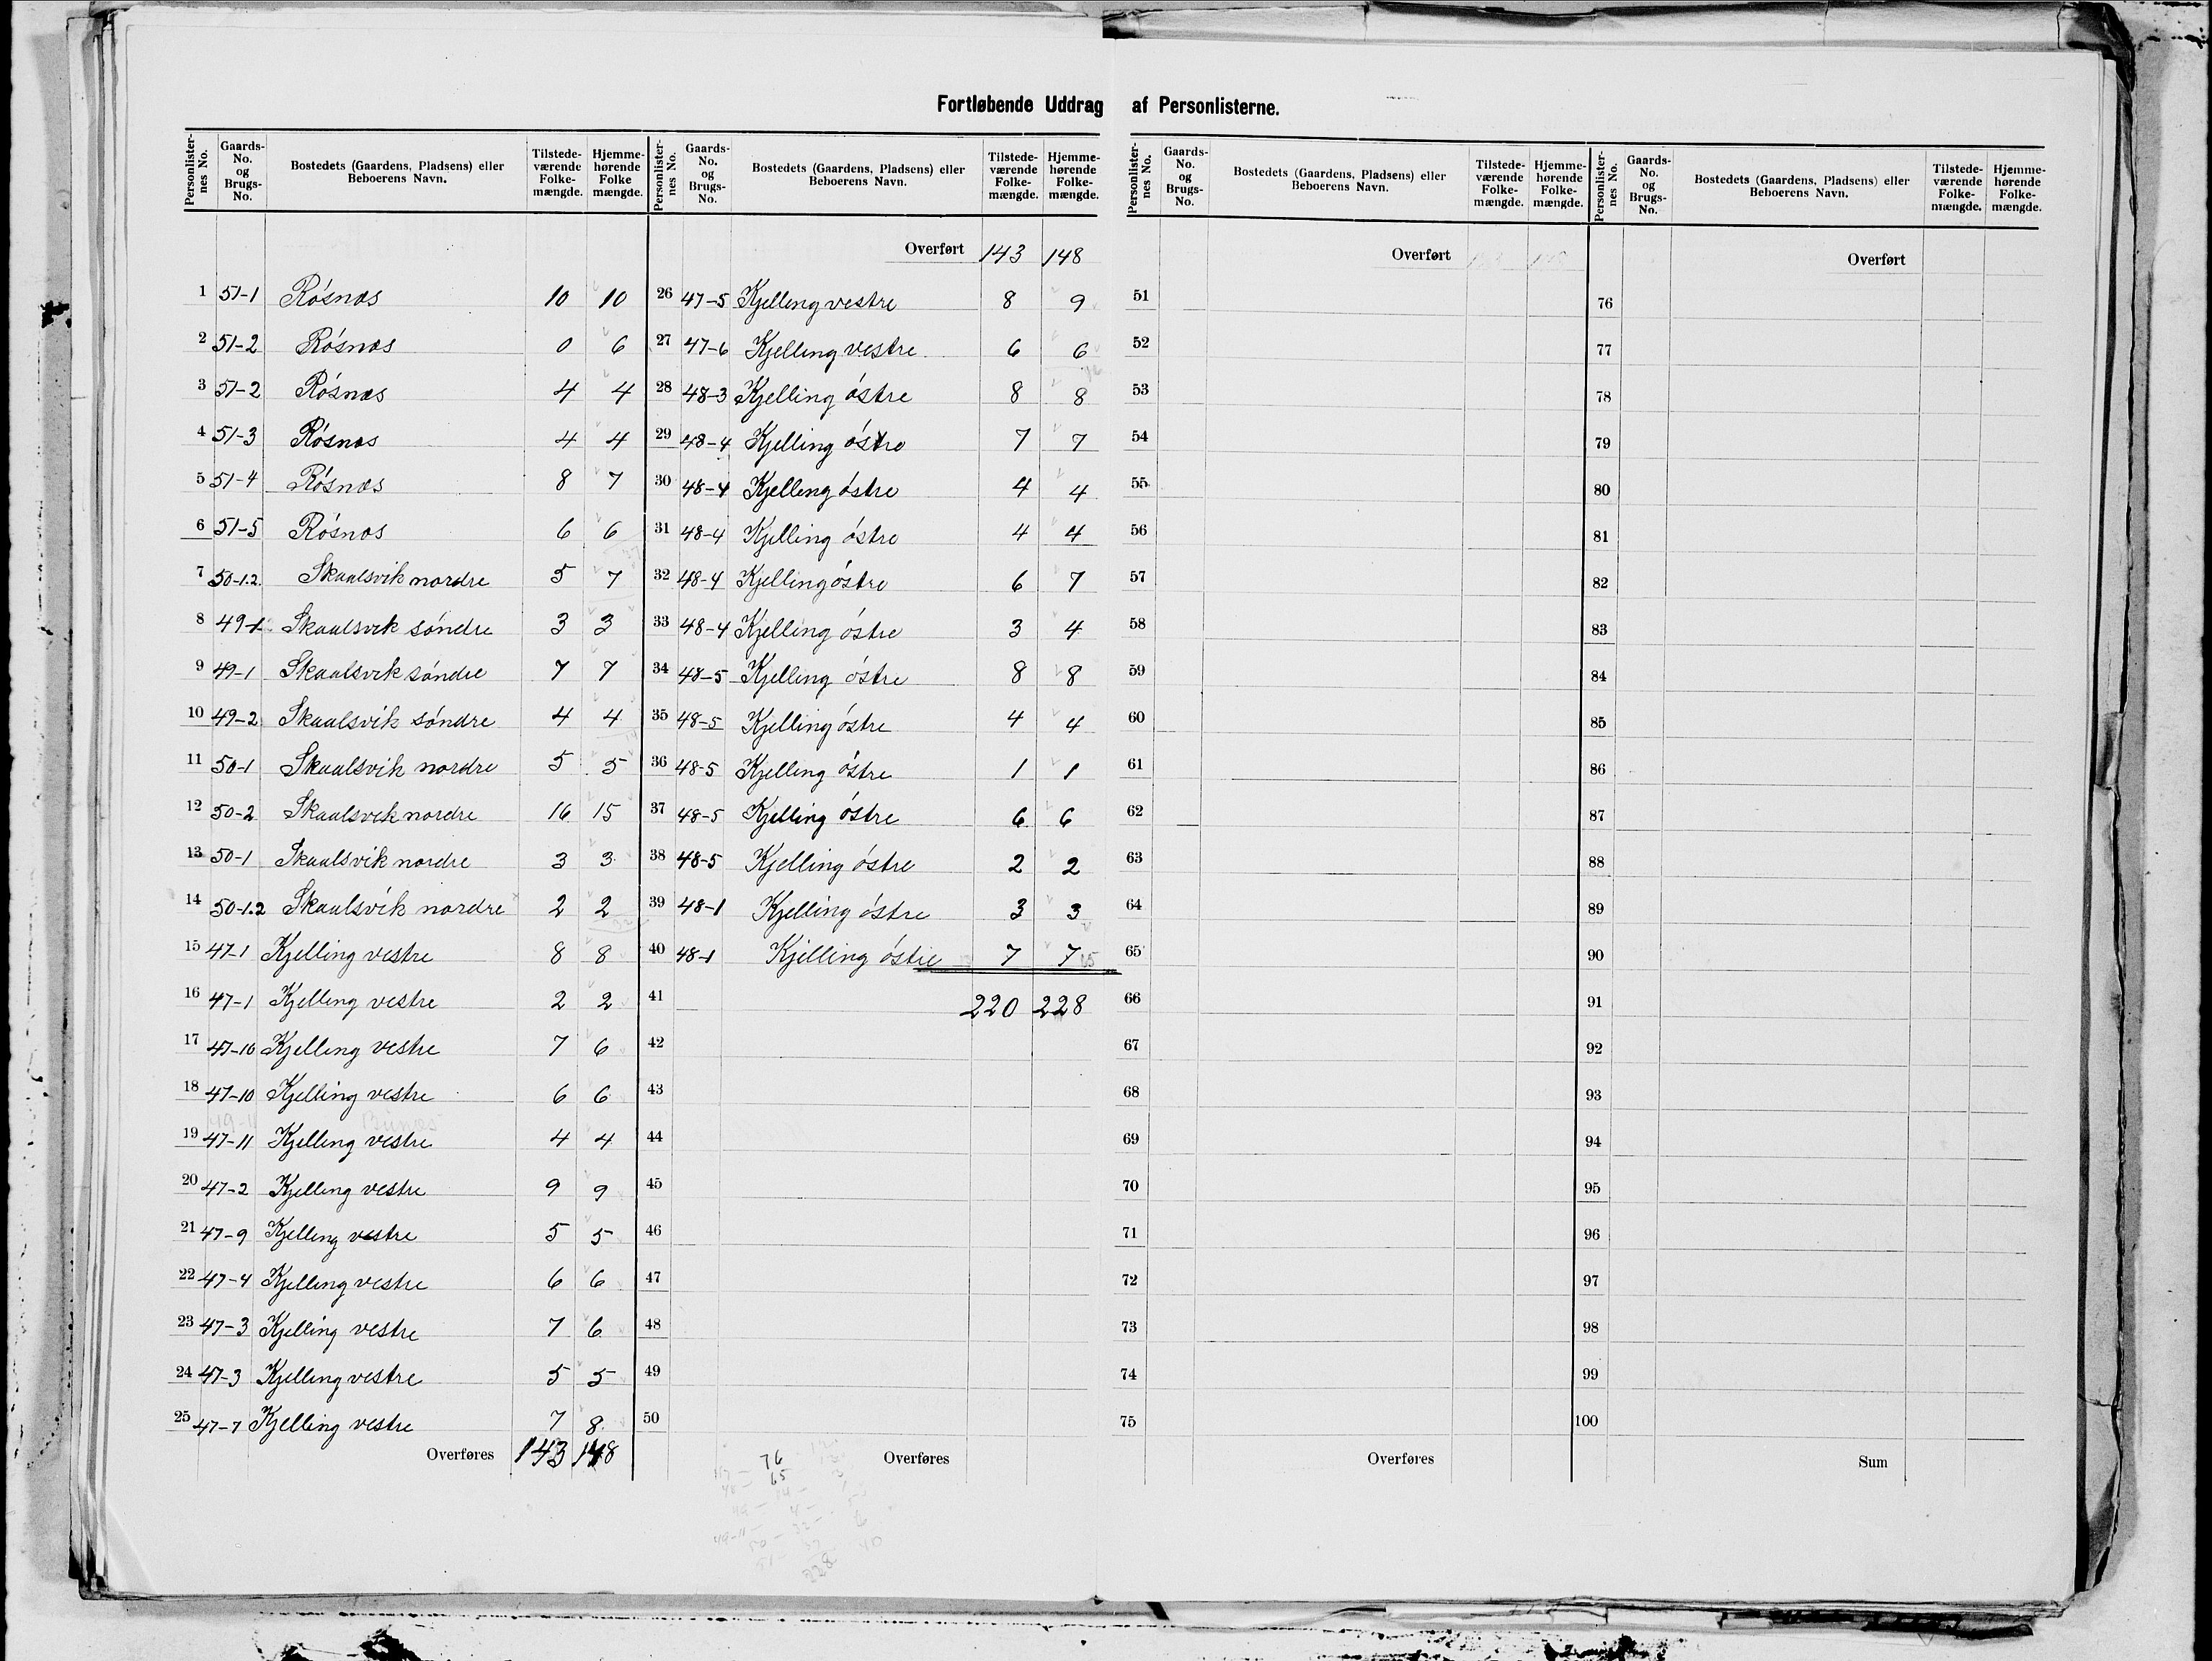 Fortløbende Uddrag af Personlisterne.
Personlisternes No. | Gaards-No. og Brugs-No. | Bostedets (Gaardens, Pladsens) eller Beboerens Navn. | Tilstedeværende Folkemængde. | Hjemmehørende Folke mængde.
1 51-1 Rósnæs 10 10
2 51-2 Rósnæs 0 6
3 51-2 Rósnæs 4 4
4 51-3 Rósnæs 4 4
5 51-4 Rósnæs 8 7
6 51-5 Rósnæs 6 6
7 50-1.2 Skaalsvik nordre 5 7
8 49-1 Skaalsvik sóndre 3 3
9 49-1 Skaalsvik sóndre 7 7
10 49-2 Skaalsvik sóndre 4 4
11 50-1 Skaalsvik nordre 5 5
12 50-2 Skaalsvik nordre 16 15
13 50-1 Skaalsvik nordre 3 3
14 50-1.2 Skaalsvik nordre 2 2
15 47-1 Kjelling vestre 8 8
16 47-1 Kjelling vestre 2 2
17 47-10 Kjelling vestre 7 6
18 47-10 Kjelling vestre 6 6
19 47-11 Kjelling vestre 4 4
20 47-2 Kjelling vestre 9 9
21 47-9 Kjelling vestre 5 5
22 47-4 Kjelling vestre 6 6
23 47-3 Kjelling vestre 7 6
24 47-3 Kjelling vestre 5 5
25 47-7 Kjelling vestre 7 8
Overføres 143 148
Personlisternes No. | Gaards-No. og Brugs-No. | Bostedets (Gaardens, Pladsens) eller Beboerens Navn. | Tilstedeværende Folkemængde. | Hjemmehørende Folkemængde.
Overført 143 148
26 47-5 Kjelling vestre 8 9
27 47-6 Kjelling vestre 6 6
28 48-3 Kjelling óstre 8 8
29 48-4 Kjelling óstre 7 7
30 48-4 Kjelling óstre 4 4
31 48-4 Kjelling óstre 4 4
32 48-4 Kjelling óstre 6 7
33 48-4 Kjelling óstre 3 4
34 48-5 Kjelling óstre 8 8
35 48-5 Kjelling óstre 4 4
36 48-5 Kjelling óstre 1 1
37 48-5 Kjelling óstre 6 6
38 48-5 Kjelling óstre 2 2
39 48-1 Kjelling óstre 3 3
40 48-1 Kjelling óstre 7 7
41 220 228
42
43
44
45
46
47
48
49
50
Overføres
76
65
228
Personlisternes No. | Gaards-No. og Brugs-No. | Bostedets (Gaardens, Pladsens) eller Beboerens Navn. | Tilstedeværende Folkemængde. | Hjemmehørende Folkemængde.
Overført
51
52
53
54
55
56
57
58
59
60
61
62
63
64
65
66
67
68
69
70
71
72
73
74
75
Overføres
Personlisternes No. | Gaards-No. og Brugs-No. | Bostedets (Gaardens, Pladsens) eller Beboerens Navn. | Tilstedeværende Folkemængde. | Hjemmehørende Folkemængde.
Overført
76
77
78
79
80
81
82
83
84
85
86
87
88
89
90
91
92
93
94
95
96
97
98
99
100
Sum